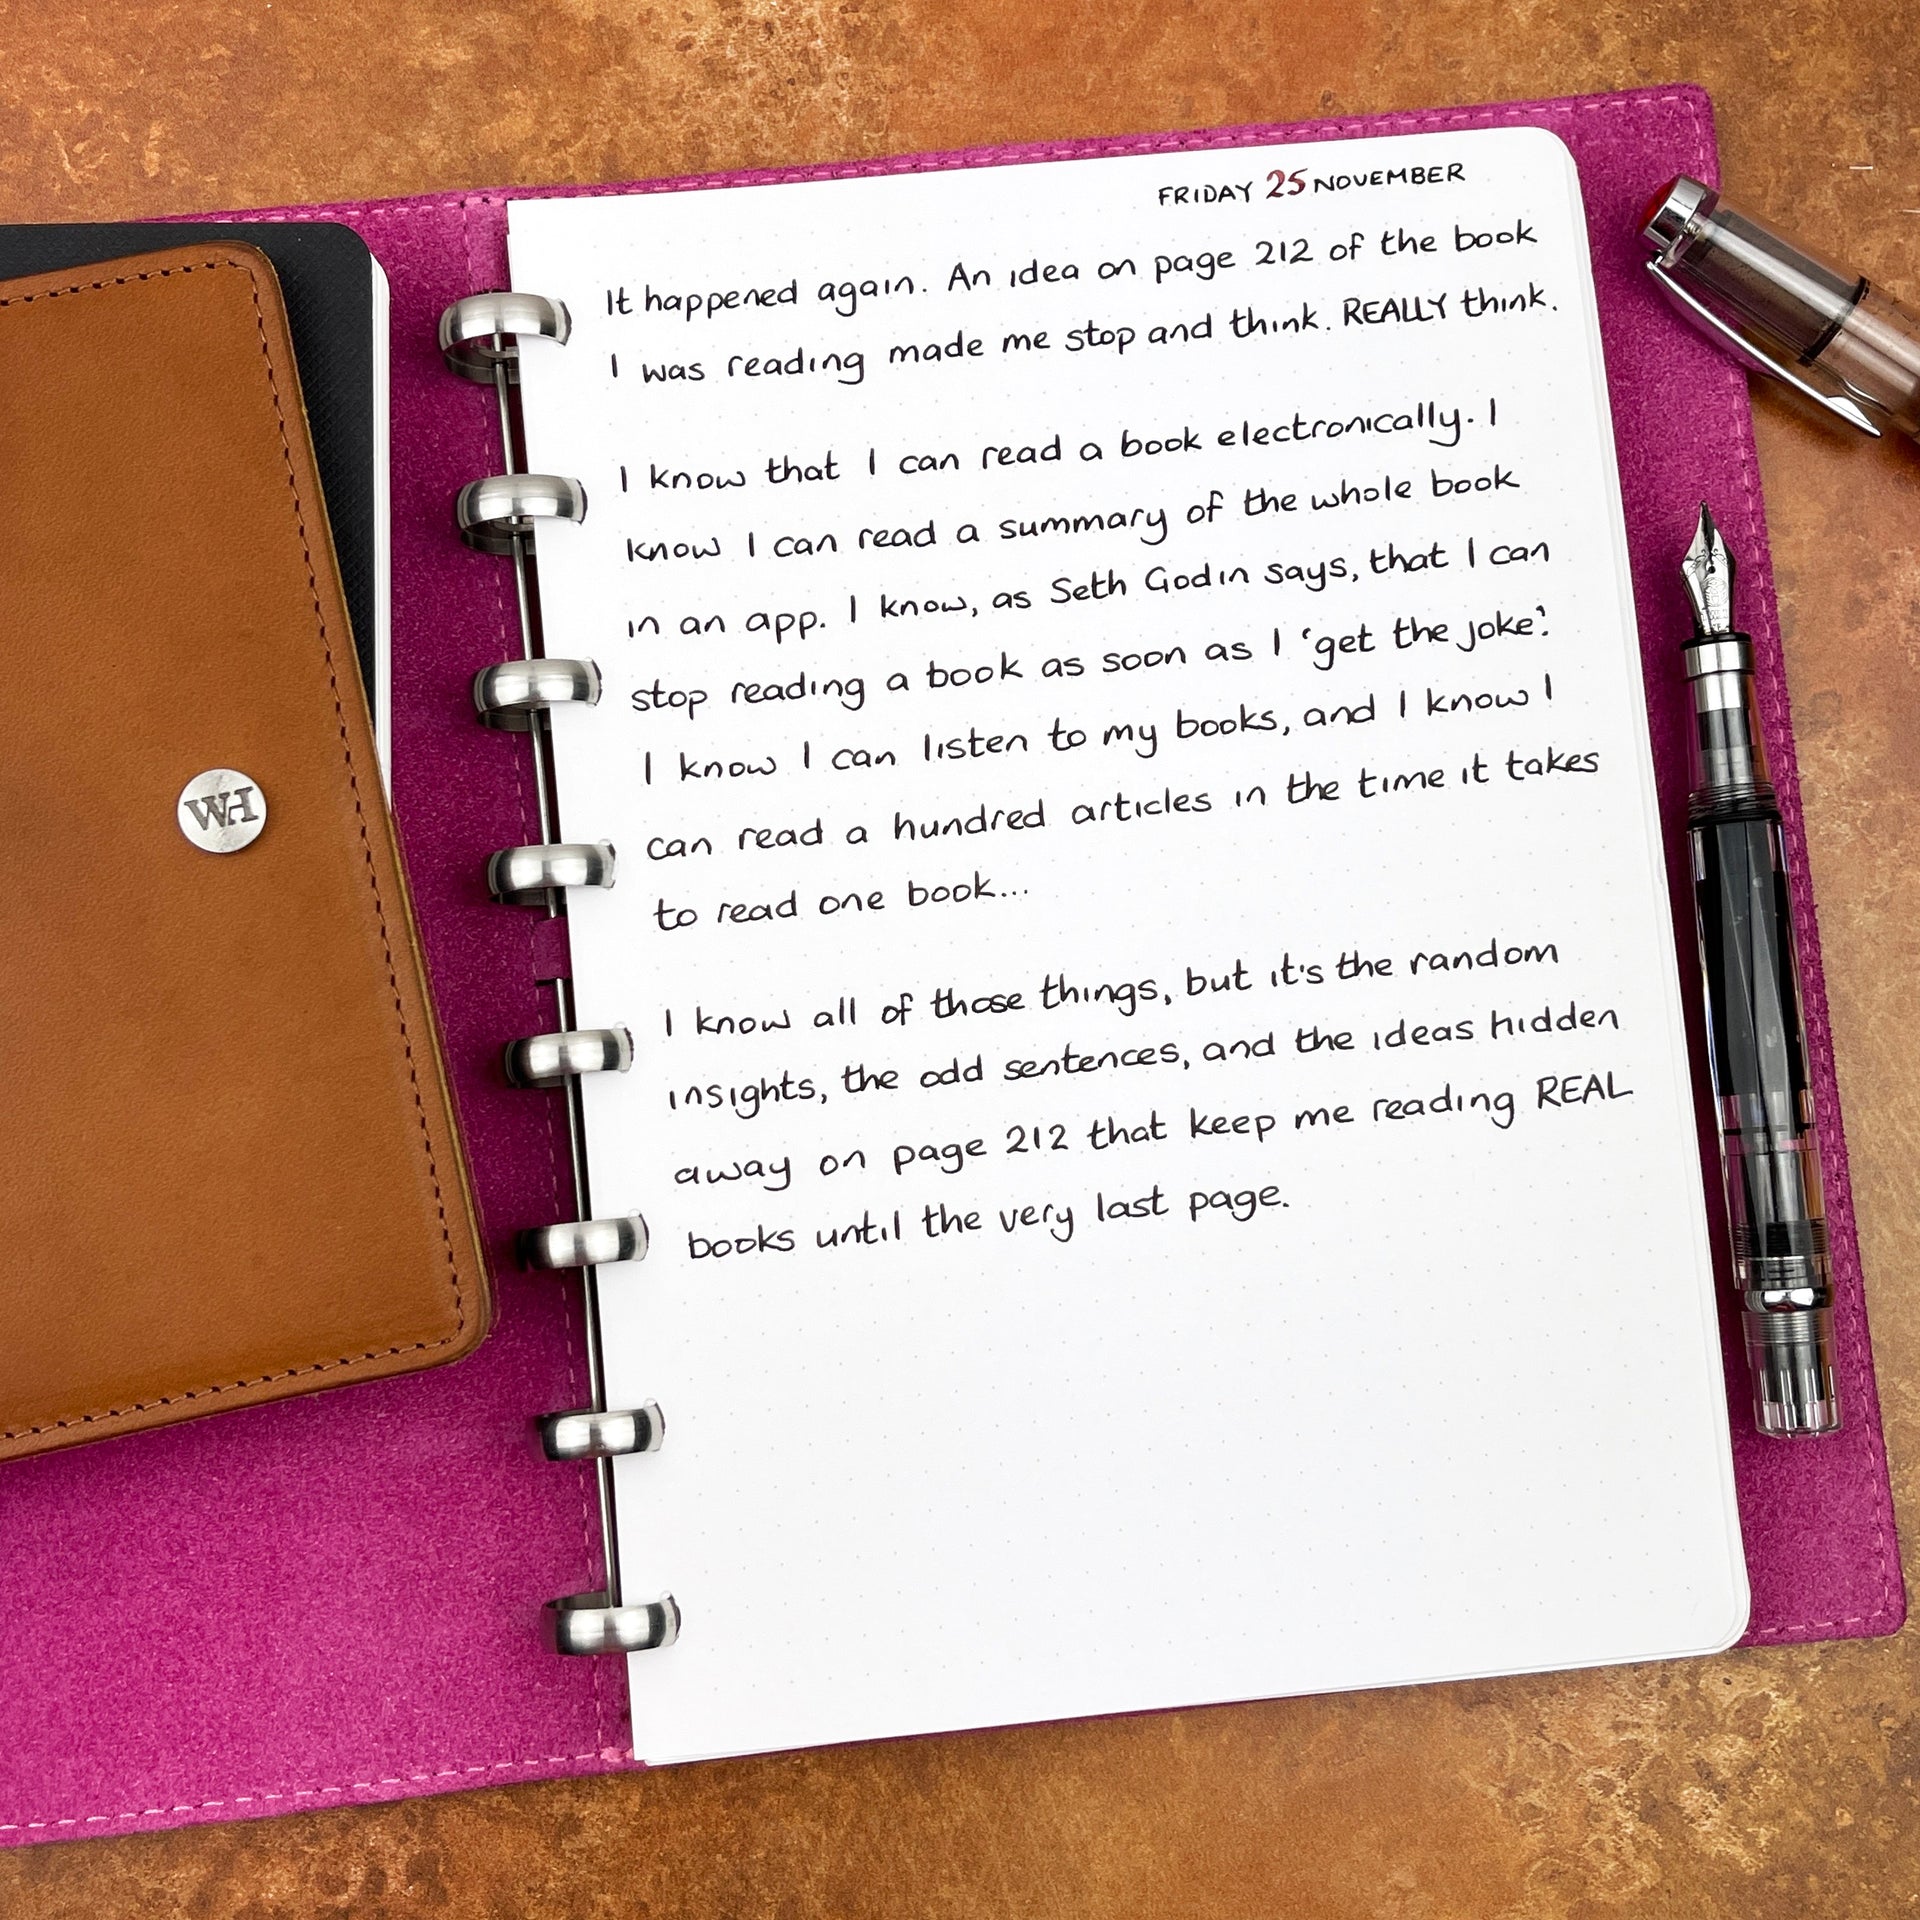 FRIDAY 25 NOVEMBER
It happened again. An idea on page 212 of the book
I was reading made me stop and think. REALLY think.
I know that I can read a book electronically. I
know I can read a summary of the whole book
in an app. I know, as Seth Godin says, that I can
stop reading a book as soon as I 'get the joke'.
I know I can listen to my books, and I know I
can read a hundred articles in the time it takes
to read one book...
I know all of those things, but it's the random
insights, the odd sentences, and the ideas hidden
away on page 212 that keep me reading REAL
books until the very last page.
WH